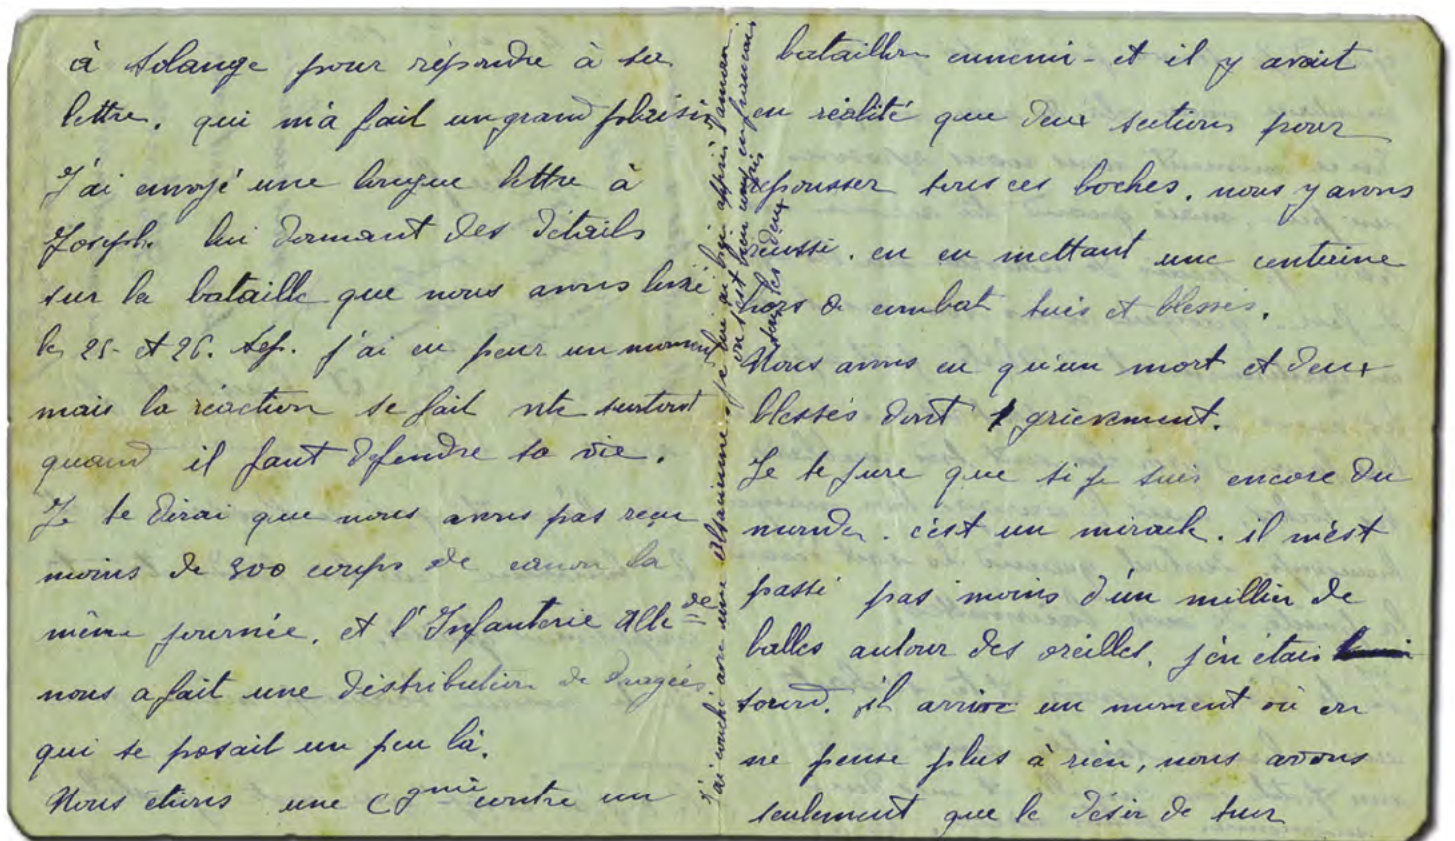 à Solange pour répondre à sa
lettre, qui m'a fait un grand plaisir
J'ai envoyé une longue lettre à
Joseph. lui donnant des détails
sur la bataille que nous avons livré
les 25- et 26. Sep. j'ai eu peur un moment
mais la réaction se fait vite surtout
quand il faut défendre sa vie.
Je te dirai que nous avons pas reçu
moins de 300 coups de canon la
même journée. et l'Infanterie Allde
nous a fait une distribution de dragées
qui se posait un peu là.
Nous étions une Cgnie contre un
J'ai couché avec une alsacienne, je lui ai
bataillon ennemi - et il y avait
en réalité que deux sections pour
repousser tous ces boches. nous y avons
réussi. en en mettant une centaine
hors de combat tués et blessés.
Nous avons eu qu'un mort et deux
blessés dont 1 grièvement.
Je te jure que si je suis encore du
monde. c'est un miracle. il m'est
passé pas moins d'un millier de
balles autour des oreilles. j'en étais
sourd. il arrive un moment où on
ne pense plus à rien, nous avons
seulement que le désir de tuer